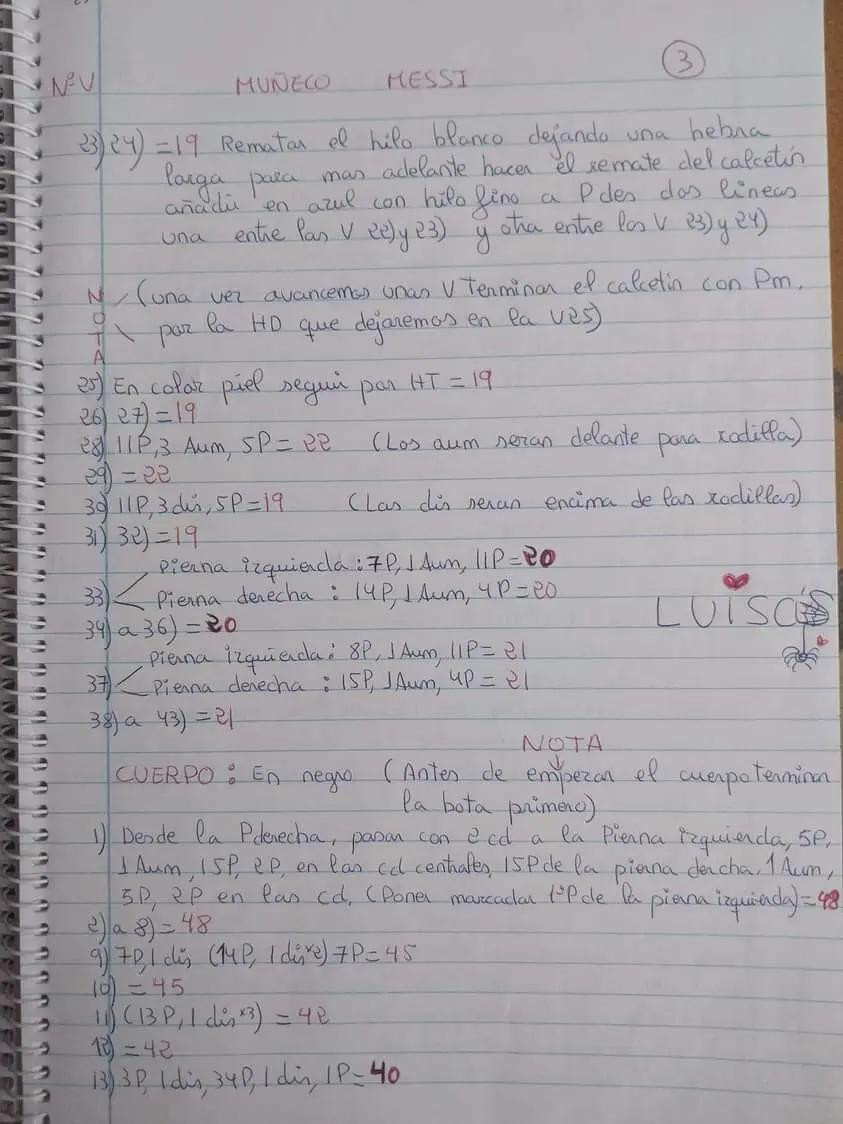 NºV MUÑECO MESSI 3
23) 24) = 19 Rematar el hilo blanco dejando una hebra
larga para mas adelante hacer el remate del calcetín
añadir en azul con hilo fino a P des dos lineas
una entre las V 22) y 23) y otra entre las V 23) y 24)
NOTA
(una vez avancemos unas V Terminar el calcetin con Pm.
por la HD que dejaremos en la V25)
25) En color piel seguir por HT = 19
26) 27) = 19
28) 11P, 3 Aum, 5P = 22 (Los aum seran delante para rodilla)
29) = 22
30) 11P, 3 dis, 5P = 19 (Las dis seran encima de las rodillas)
31) 32) = 19
Pierna izquierda : 7P, 1 Aum, 11P = 20
33) Pierna derecha : 14P, 1 Aum, 4P = 20
LUISA'S
34) a 36) = 20
Pierna izquierda : 8P, 1 Aum, 11P = 21
37) Pierna derecha : 15P, 1 Aum, 4P = 21
38) a 43) = 21
NOTA
CUERPO : En negro (Antes de empezar el cuerpo terminar
la bota primero)
1) Desde la P derecha, pasar con 2 cd a la Pierna izquierda, 5P,
1 Aum, 15P, 2P, en las cd centrales, 15P de la pierna dercha, 1 Aum,
5P, 2P en las cd, (Poner marcador 1ºP de la pierna izquierda) = 48
2) a 8) = 48
9) 7P, 1 dis, (14P, 1 dis x2) 7P = 45
10) = 45
11) (13P, 1 dis x3) = 42
12) = 42
13) 3P, 1 dis, 34P, 1 dis, 1P = 40